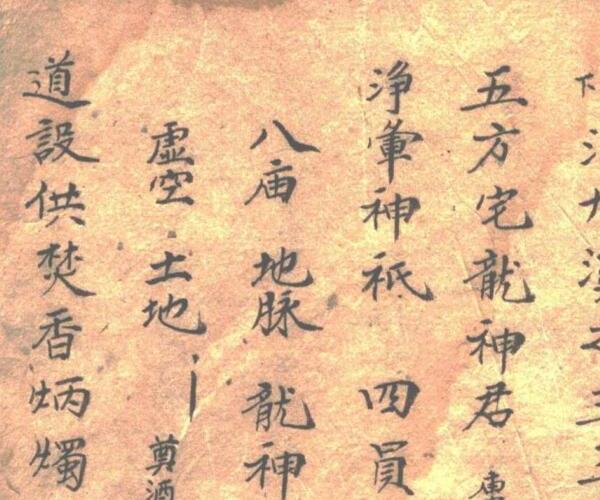 下
五方宅龍神君
淨暈神祇 四員
八庙 地脉 龍神
虛空 土地 奠酒
道設供焚香炳燭